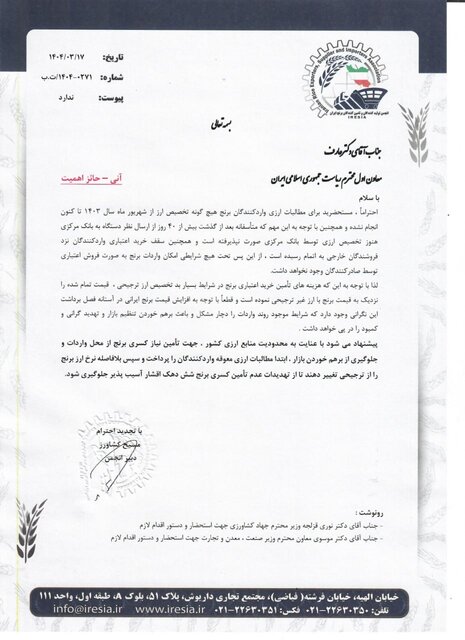 Iranian Rice Exporters, Supplier and Importers Association
انجمن تولید کنندگان و تامین کنندگان برنج ایران
IRESIA
تاریخ: ۱۴۰۴/۰۳/۱۷
شماره: ۱۴۰۴۰-۰۲۷۱/ت.ب
پیوست: ندارد
بسمه تعالی
جناب آقای دکتر عارف
معاون اول محترم ریاست جمهوری اسلامی ایران
آنی – حائز اهمیت
با سلام
احتراماً ، مستحضرید برای مطالبات ارزی واردکنندگان برنج هیچ گونه تخصیص ارز از شهریور ماه سال ۱۴۰۳ تا کنون
انجام نشده و همچنین با توجه به این مهم که متأسفانه بعد از گذشت بیش از ۴۰ روز از ارسال نظر دستگاه به بانک مرکزی
هنوز تخصیص ارزی توسط بانک مرکزی صورت نپذیرفته است و همچنین سقف خرید اعتباری واردکنندگان نزد
فروشندگان خارجی به اتمام رسیده است ، از این پس تحت هیچ شرایطی امکان واردات برنج به صورت فروش اعتباری
توسط صادرکنندگان وجود نخواهد داشت.
لذا با توجه به این که هزینه های تأمین خرید اعتباری برنج در شرایط بسیار بد تخصیص ارز ترجیحی ، قیمت تمام شده را
نزدیک به قیمت برنج با ارز غیر ترجیحی نموده است و قطعاً با توجه به افزایش قیمت برنج ایرانی در آستانه فصل برداشت
این نگرانی وجود دارد که شرایط موجود روند واردات را دچار مشکل و باعث برهم خوردن تنظیم بازار و تهدید گرانی و
کمبود را در پی خواهد داشت .
پیشنهاد می شود با عنایت به محدودیت منابع ارزی کشور ، جهت تأمین نیاز کسری برنج از محل واردات و
جلوگیری از برهم خوردن بازار ، ابتدا مطالبات ارزی معوقه واردکنندگان را پرداخت و سپس بلافاصله نرخ ارز برنج
را از ترجیحی تغییر دهند تا از تهدیدات عدم تأمین کسری برنج شش دهک اقشار آسیب پذیر جلوگیری شود.
با تجدید احترام
مسیح کشاورز
دبیر انجمن
رونوشت :
- جناب آقای دکتر نوری قزلجه وزیر محترم جهاد کشاورزی جهت استحضار و دستور اقدام لازم
- جناب آقای دکتر موسوی معاون محترم وزیر صنعت ، معدن و تجارت جهت استحضار و دستور اقدام لازم
خیابان الهیه، خیابان فرشته( فیاضی)، مجتمع تجاری داریوش، پلاک ۵۱، بلوک A، طبقه اول، واحد ۱۱۱
تلفن: ۲۲۶۳۰۳۵۰-۰۲۱ فکس: ۲۲۶۳۰۳۵۱-۰۲۱ www.iresia.ir info@iresia.ir